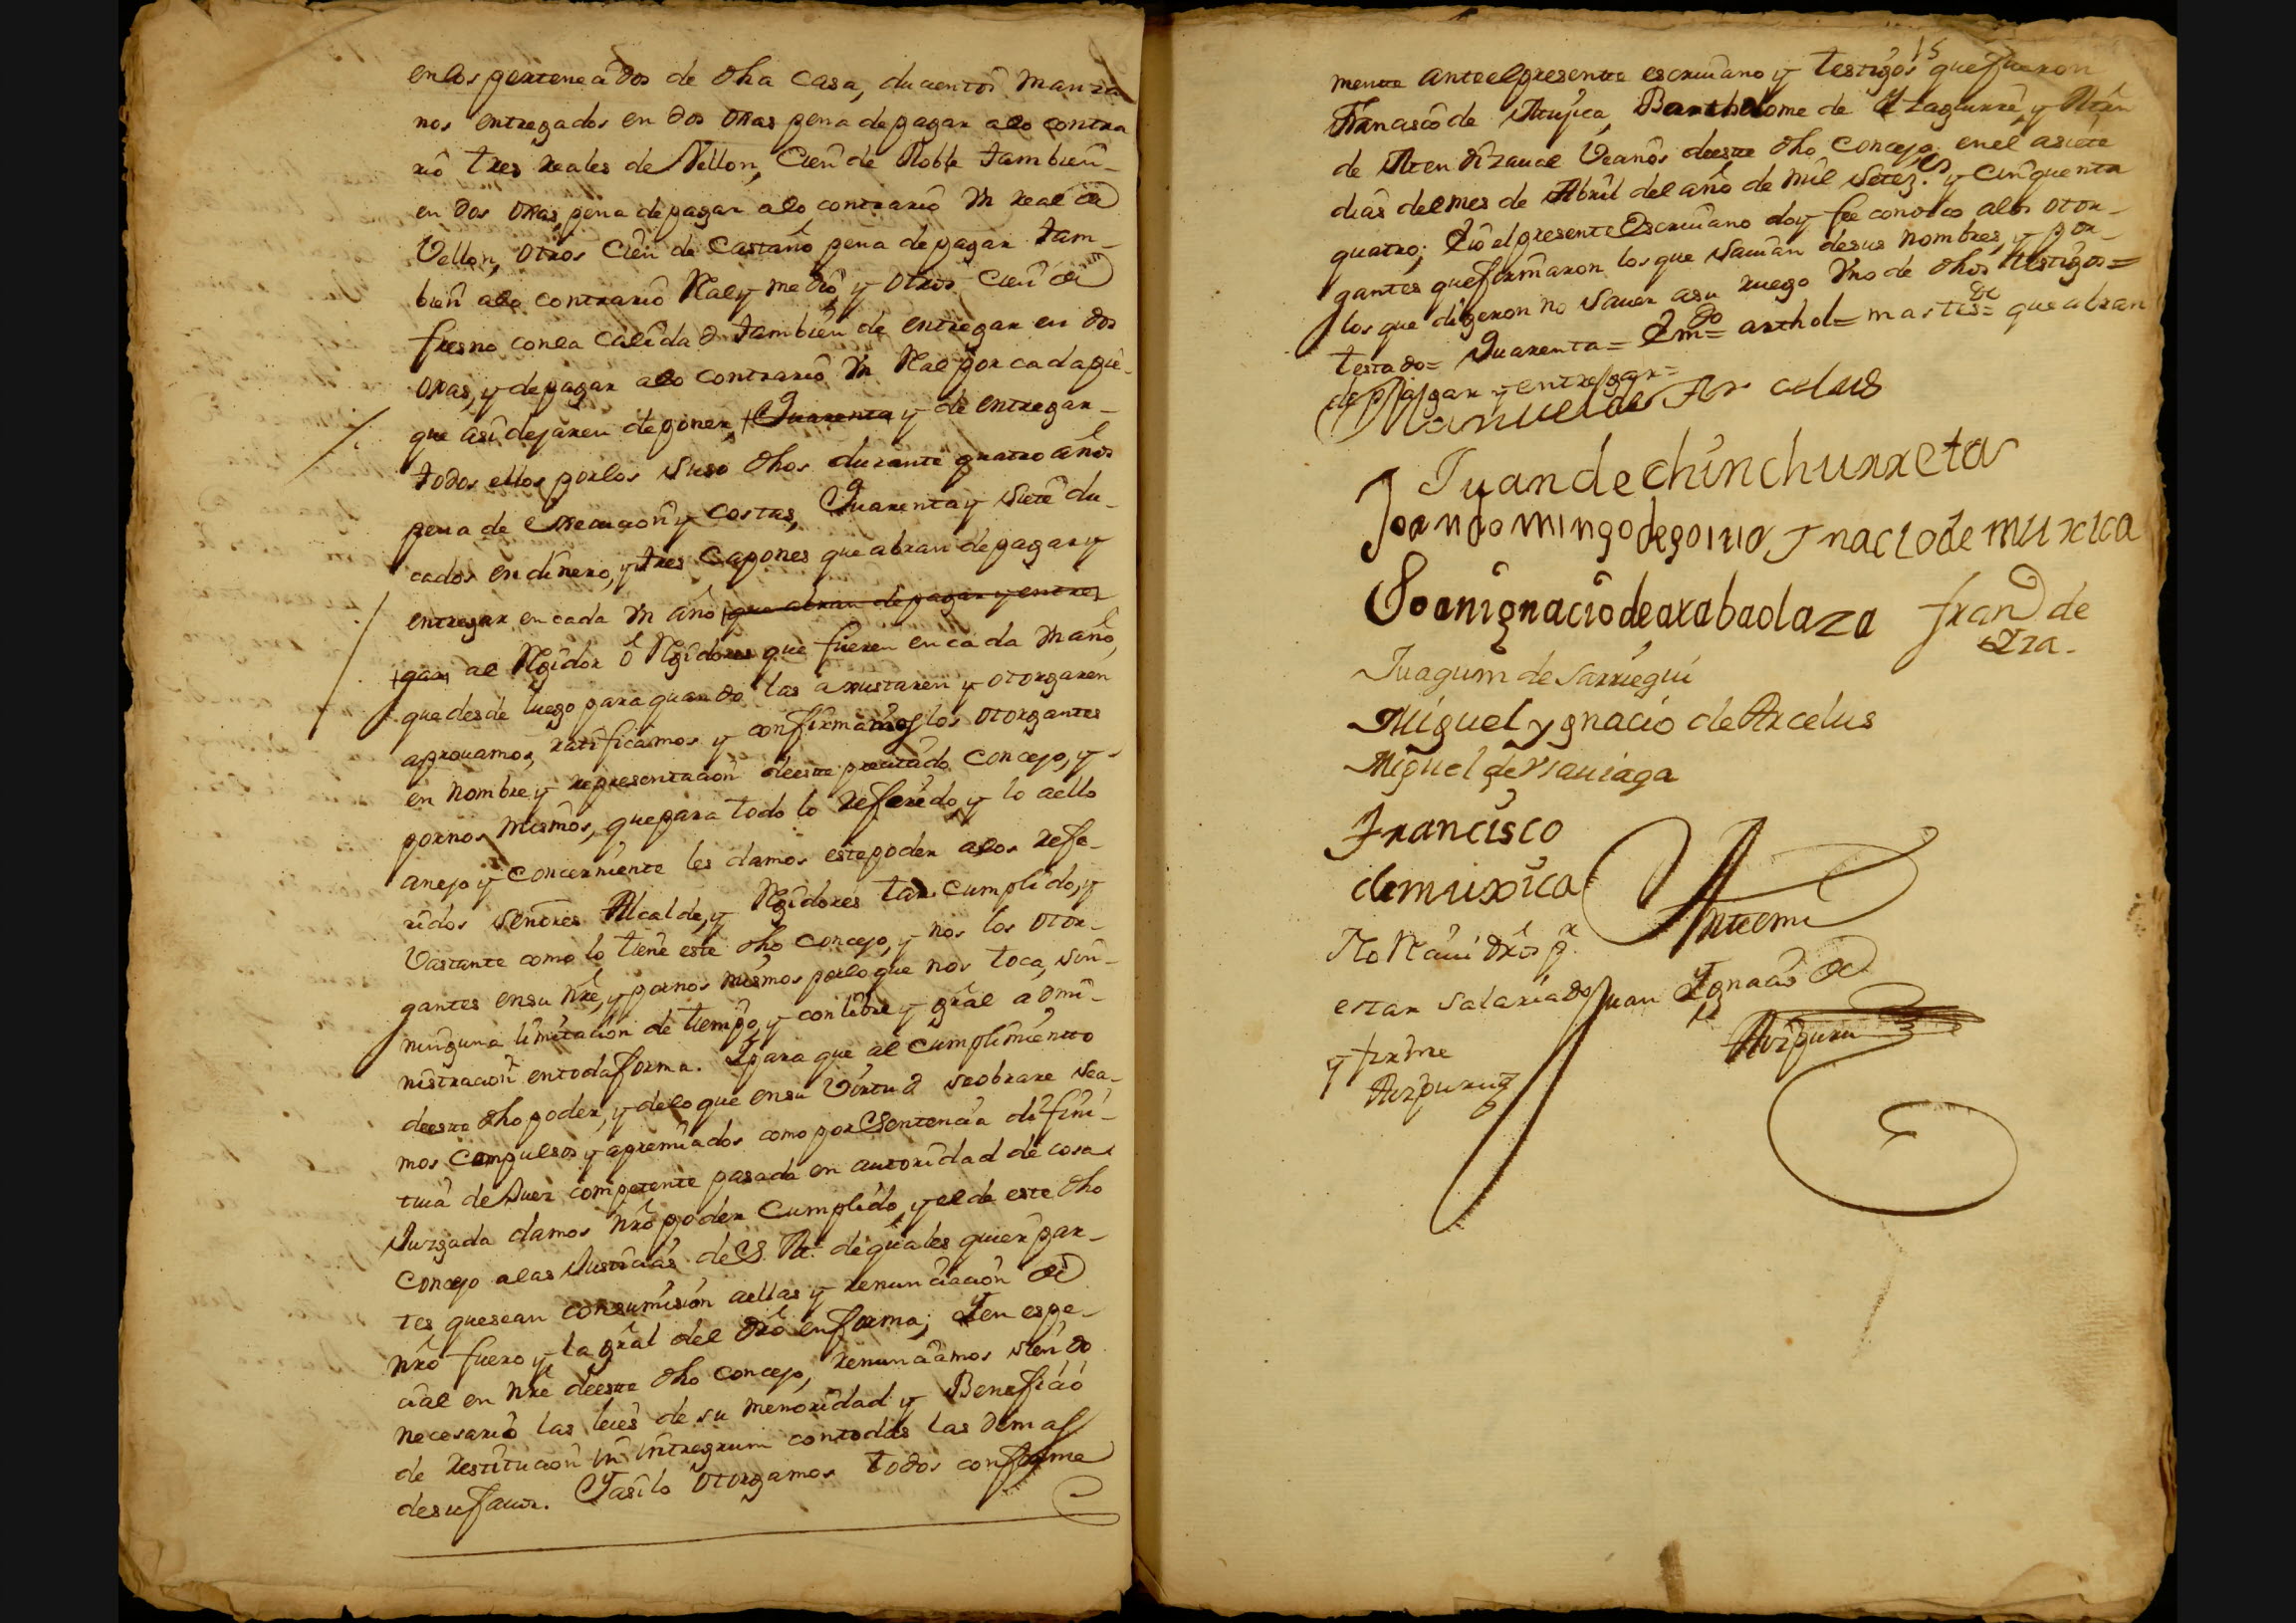 en los pertenecidos de dha Casa, ducientos Manza
nos entregados en dos ojas pena de pagar alo contra
rio tres reales de Vellon, Cien de Roble tambien
en dos ojas, pena de pagar alo contrario Vn real de
Vellon, otros Cien de Castaño pena de pagar tam-
bien alo contrario Real y medio, y otros Cien de
fresno con la Calidad tambien de entregar en dos
ojas, y de pagar alo contrario Vn Real por cada pie
que asi dejaren de poner, Quarenta y de entregar
todos ellos por los suso dhos durante quatro años
pena de execucion y costas, Quarenta y siete du-
cados en dinero, y tres Capones que abran de pagar y
entregar en cada Vn año que abran de pagar y entre
gar al Regidor ó Regidores que fueren en cada Vn año,
que desde luego para quando las ajustaren y otorgaren
aprouamos, ratificamos y confirmamos los otorgantes
en nombre y representacion de este precitado Concejo, y
por nos mismos, que para todo lo referido, y lo aello
anejo y concerniente les damos este poder alos refe-
ridos señores Alcalde, y Regidores tan cumplido, y
Vastante como lo tiene este dho Concejo, y nos los otor-
gantes en su nre, y por nos mismos por lo que nos toca, sin
ninguna limitacion de tiempo, y con libre y gral admi-
nistracion en toda forma. Y para que al Cumplimiento
de este dho poder, y de lo que en su Virtud se obrare sea-
mos Compulsos y apremiados como por Sentencia difini-
tiua de Juez competente pasada en autoridad de cosa
Juzgada damos nro poder Cumplido, y el de este dho
Concejo alas Justicias de S. M. de quales quier par-
tes que sean con sumision aellas y renunciacion de
nro fuero y la gral del dro en forma; Y en espe-
cial en nre de este dho Concejo, renunciamos siendo
necesario las leies de su menoridad y Beneficio
de restitucion in integrum con todas las demas
de su fauor. Y asi lo otorgamos todos conforme
15
mente ante el presente escriuano y testigos que fueron
Francisco de Bartholome de Yzaguirre, y
de Vecinos de este dho Concejo, en el a siete
dias del mes de Abril del año de mil setez.s y cinquenta
quatro; Yo el presente Escriuano doy fee conozco alos otor-
gantes que firmaron los que sauian de sus nombres, y por
los que digeron no sauer asu ruego Vno de dhos testigos=
testado= Quarenta= arthol= que abran
de pagar y entregar=
Manuel de Arcelus
Juan de chinchurreta
Joan domingo de goiria Inacio de muxica
Joan ignacio de arabaolaza fran.co de
Yza.
Juaquin de Sarriegui
Miguel ygnacio de Arcelus
Miguel de Vsauiaga
Francisco
de muxica
Antemi
No Reciui dros p.r
estar Salariado Juan Ygnacio de
y firme Aizpuru
Aizpuru